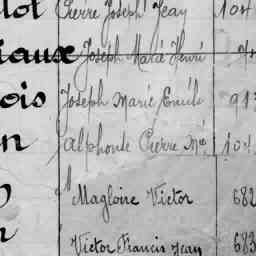 lot Pierre Joseph Jean 104
iaux Joseph Marie Henri
ois Joseph Marie Emile 913
n Alphonse Pierre Mie 104
Magloire Victor 682
Victor Francis Jean 683